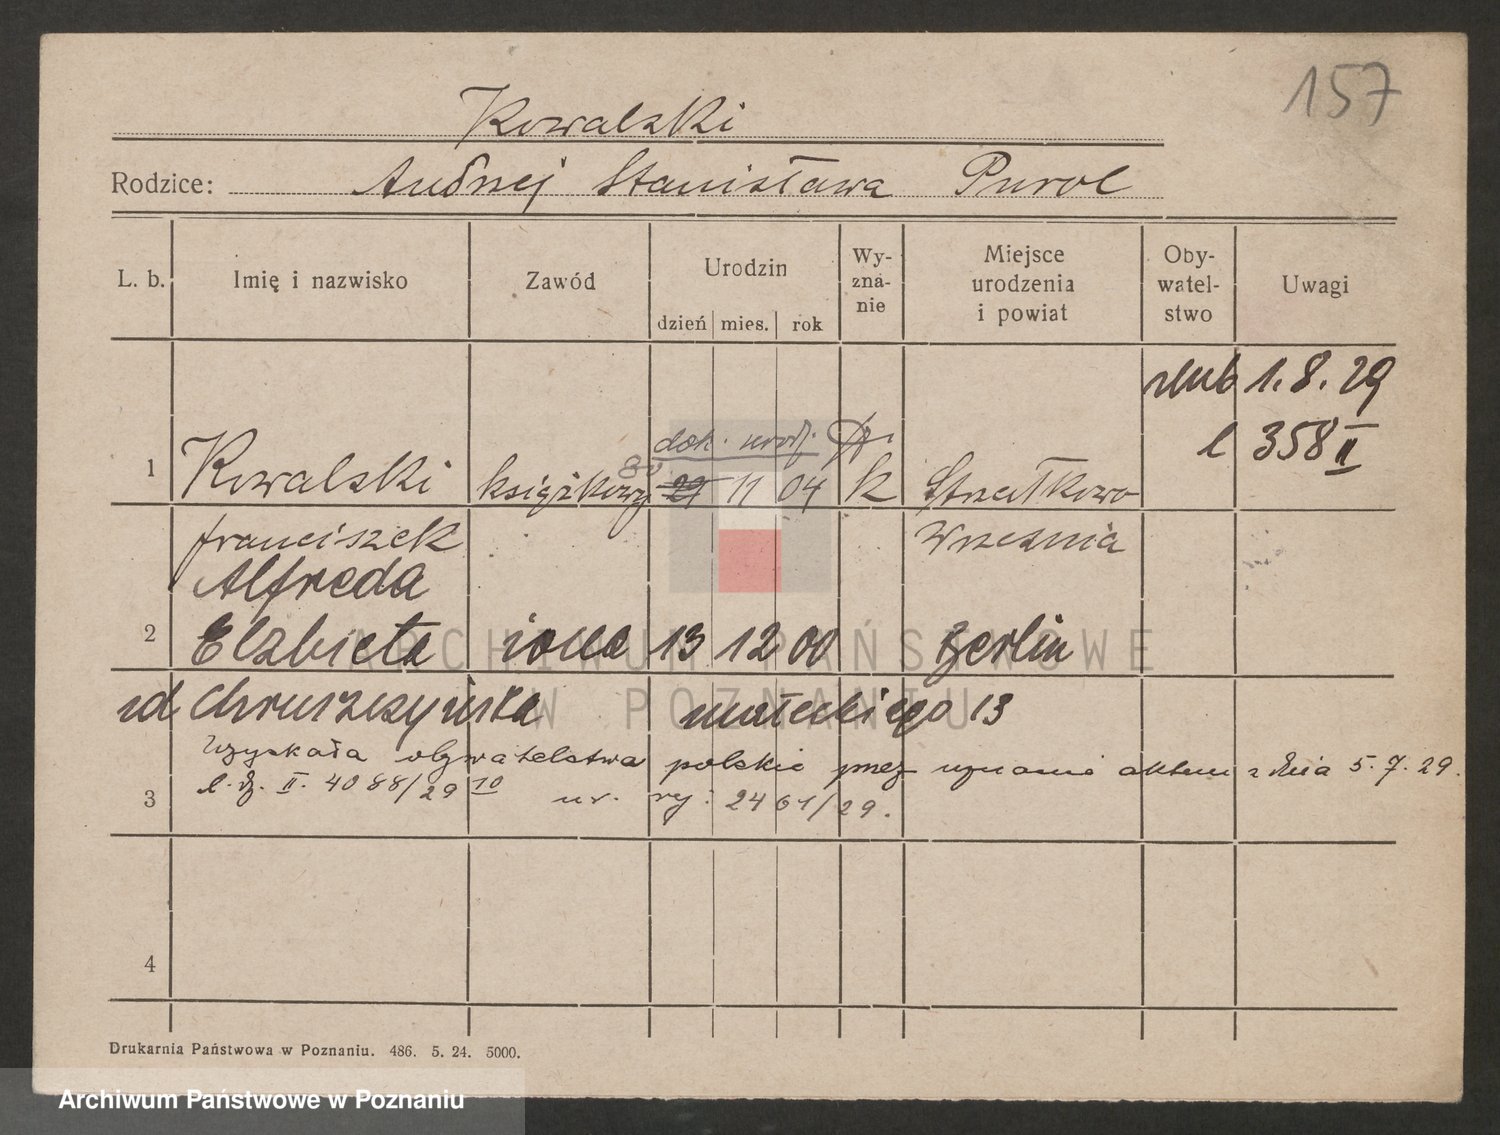 157
Kowalski
Rodzice: Andrzej Stanisława Purol
L. b. Imię i nazwisko Zawód Urodzin dzień mies. rok Wy-zna-nie Miejsce urodzenia i powiat Oby-watel-stwo Uwagi
ślub 1.8.29
l 358 II
dok. urodz.
30
1 Kowalski książkowy 29 11 04 k Strzałkowo
Franciszek Września
Alfreda
2 Elżbieta żona 13 12 00 Berlin
zd Chruszczyńska małeckiego 13
Uzyskała obywatelstwo polskie przez uznanie aktem z dnia 5.7.29.
l.dz. II. 4088/29 10 nr. rej: 2461/29.
3
4
Drukarnia Państwowa w Poznaniu. 486. 5. 24. 5000.
ARCHIWUM PAŃSTWOWE
W POZNANIU
Archiwum Państwowe w Poznaniu